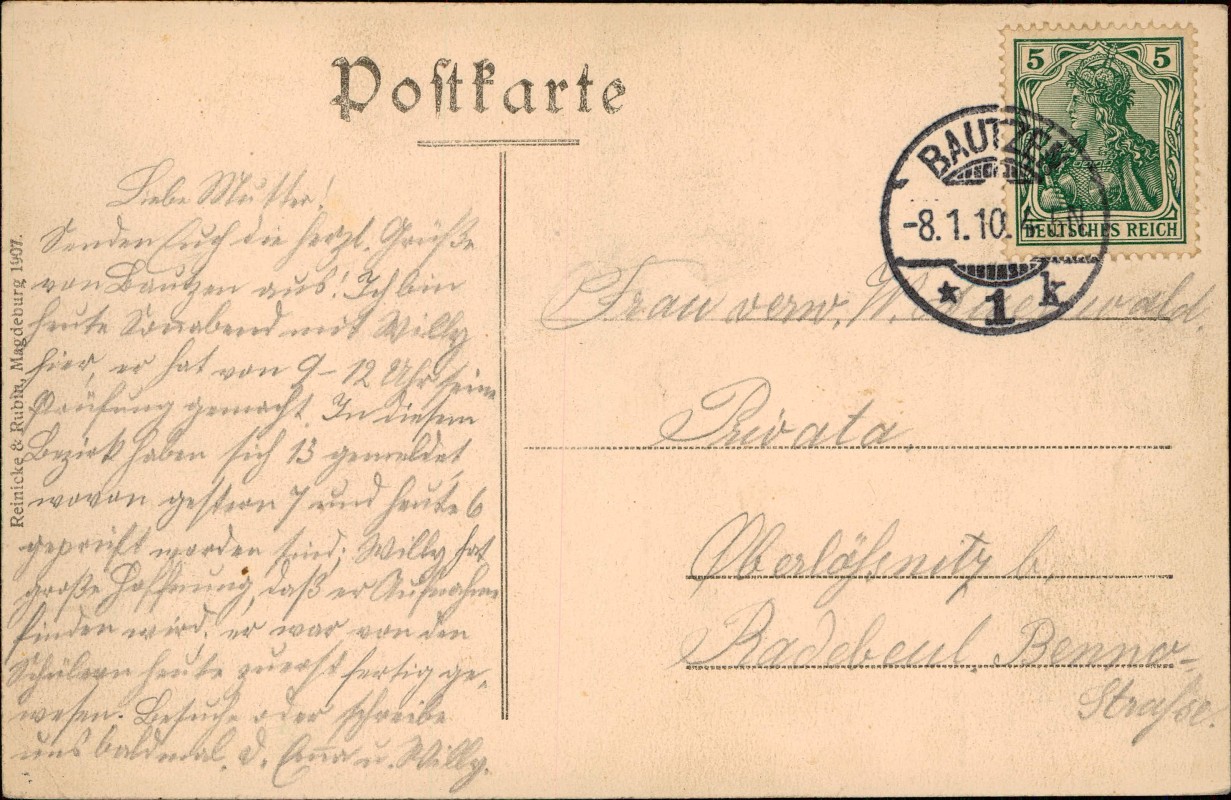 Postkarte
5 5
DEUTSCHES REICH
BAUTZEN
-8.1.10.
* 1 k
Liebe Mutter!
Senden Euch die herzl. Grüße
von Bautzen aus! Ich bin
heute Sonnabend mit Willy
hier, er hat von 9-12 Uhr seine
Prüfung gemacht. In diesem
Bezirk haben sich 13 gemeldet,
wovon gestern 7 und heute 6
geprüft worden sind; Willy hat
große Hoffnung, daß er Aufnahme
finden wird, er war von den
Schülern heute zuerst fertig ge-
wesen. Besuche oder schreibe
uns baldmal. D. u. Willy.
Frau verw.
Privata,
Oberlößnitz b.
Radebeul, Benno-
Strasse.
Reinicke & Rubin, Magdeburg 1907.